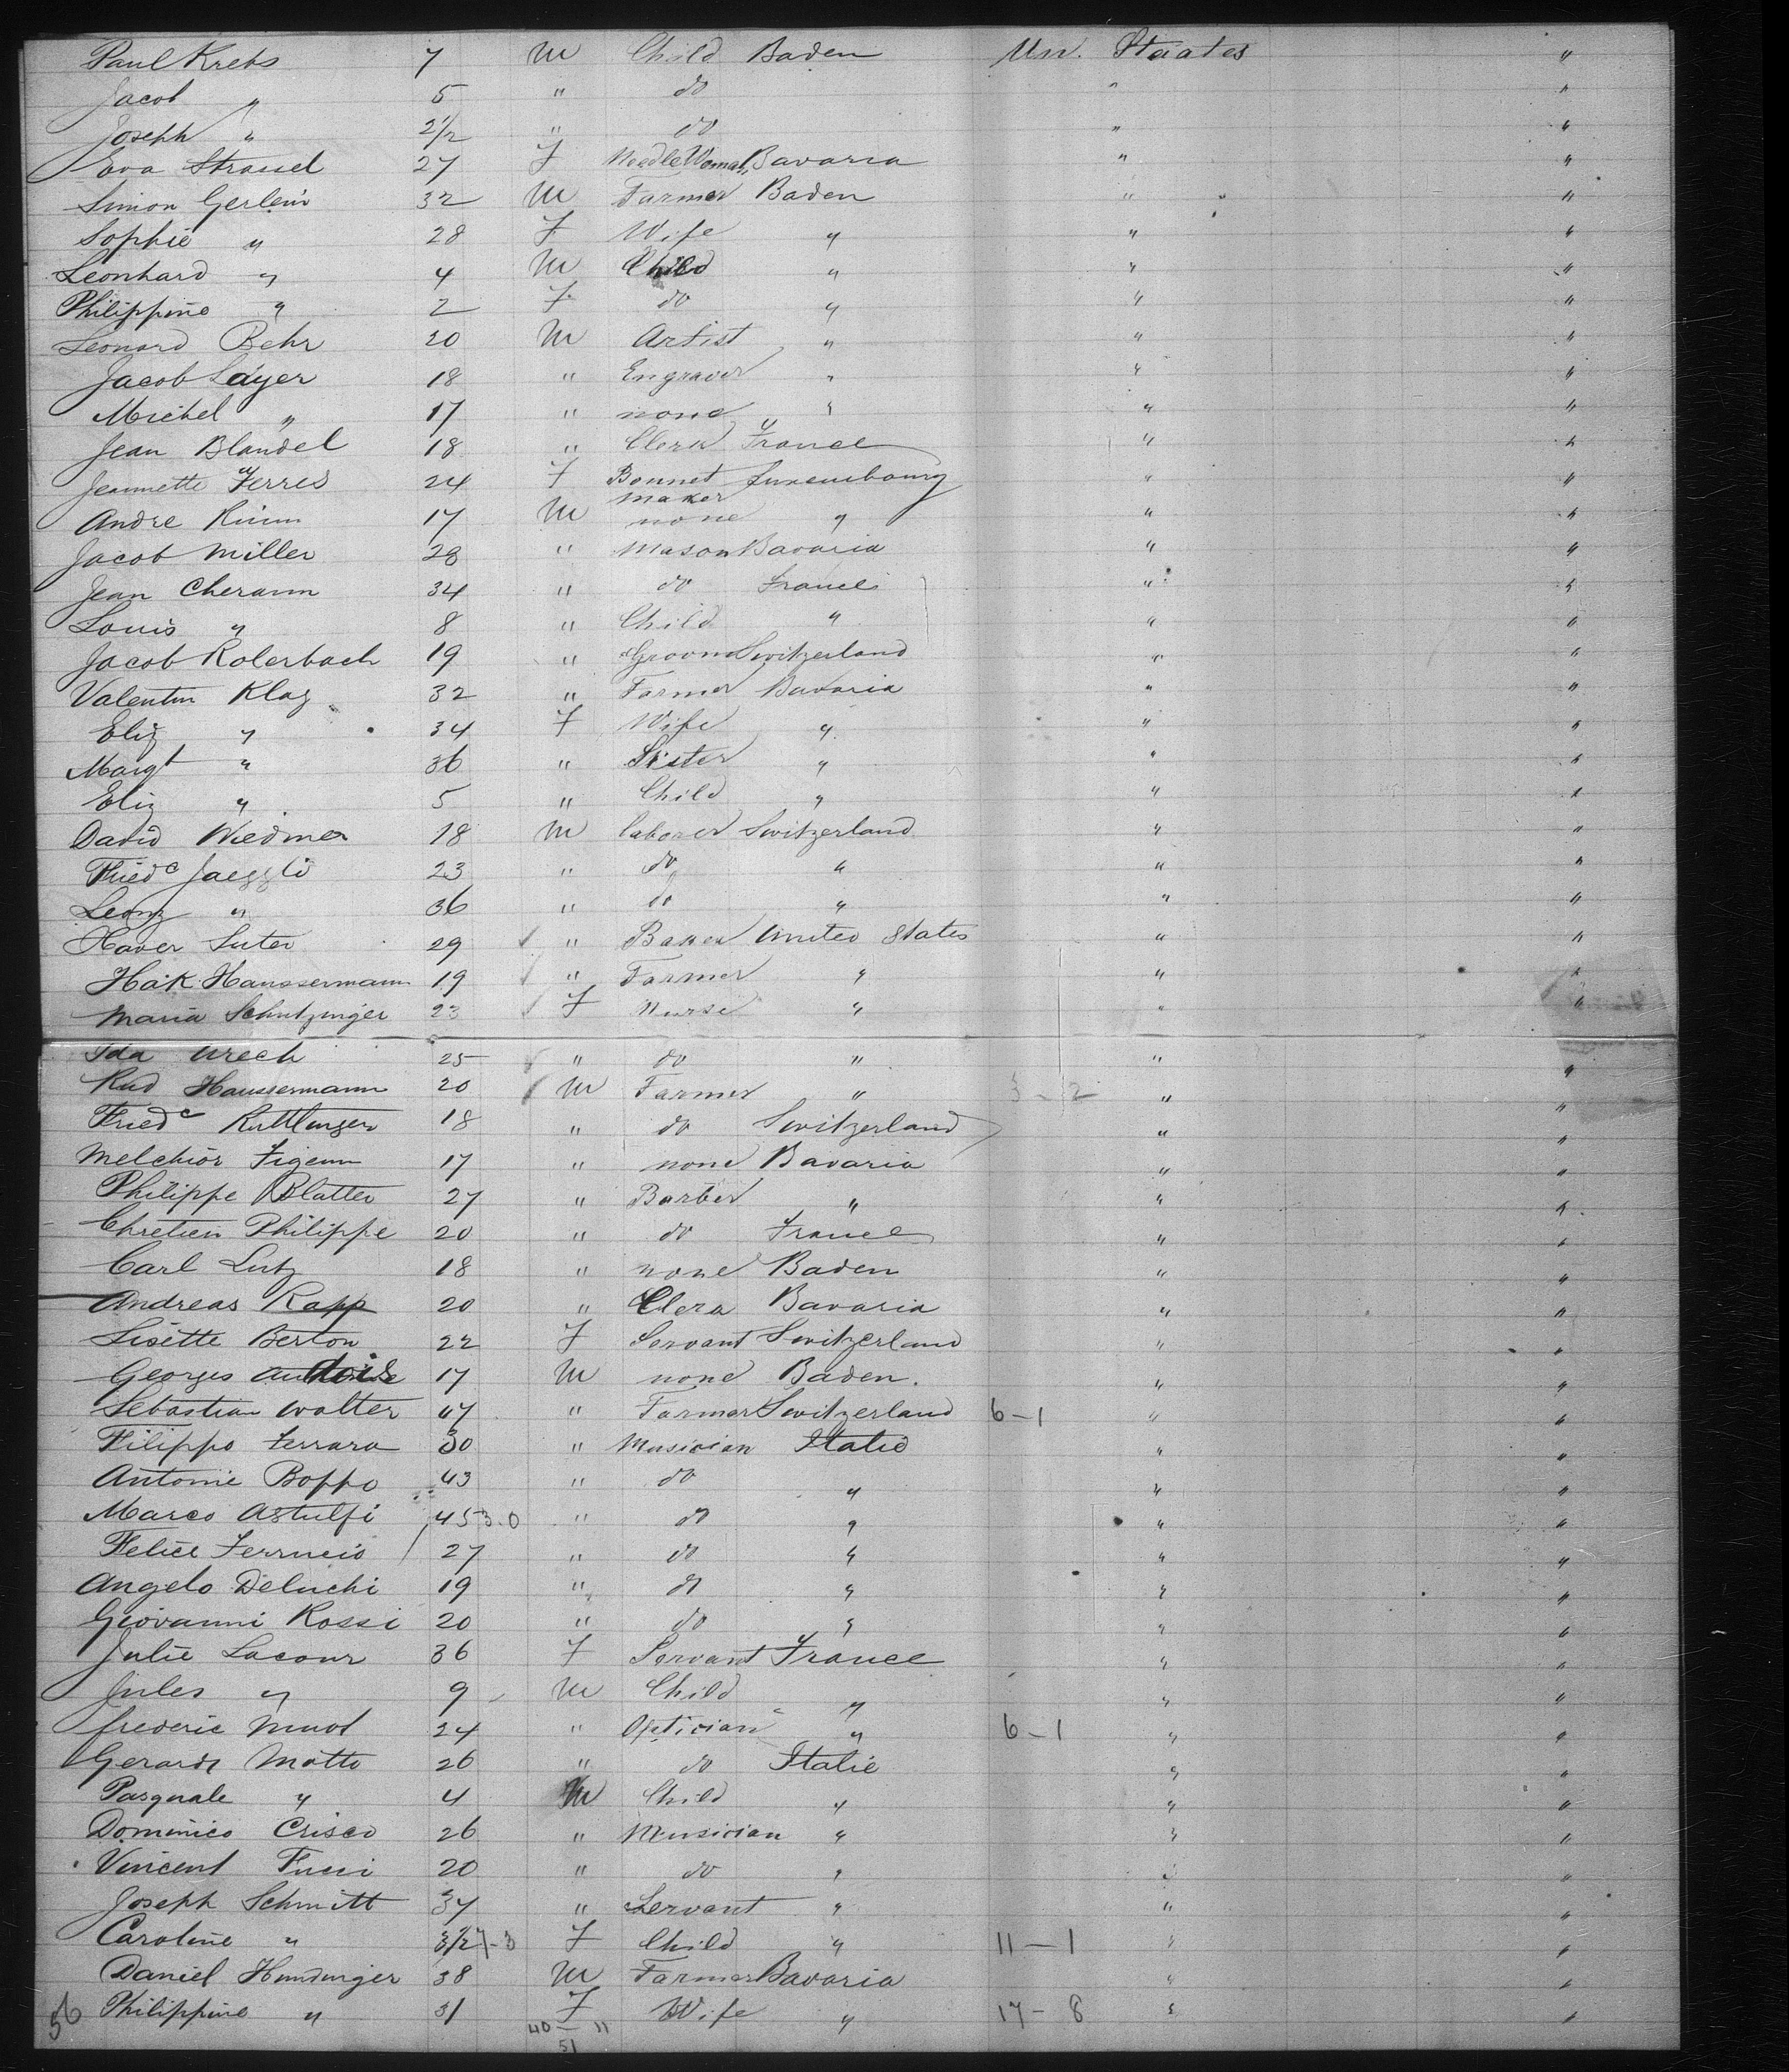 Paul Krebs 7 M Child Baden Un. Staates "
Jacob " 5 " do " "
Joseph " 2 1/2 " do " "
Eva Strauel 27 F Needle Woman Bavaria " "
Simon Gerlein 32 M Farmer Baden " "
Sophie " 28 F Wife " " "
Leonhard " 4 M Child " " "
Philippine " 2 F do " " "
Leonard Behr 20 M Artist " " "
Jacob Sayer 18 " Engraver " " "
Michel " 17 " none " " "
Jean Blandel 18 " Clerk France " "
Jeannette Ferres 24 F Bonnet Luxembourg " "
maker
Andre 17 M none " " "
Jacob Miller 28 " Mason Bavaria " "
Jean Cheramm 34 " do France " "
Louis " 8 " Child " " "
Jacob Rolerbach 19 " Groom Switzerland " "
Valentin Klag 32 " Farmer Bavaria " "
Eliz " 34 F Wife " " "
Margt " 36 " Sister " " "
Eliz " 5 " Child " " "
David Wiedmer 18 M laborer Switzerland " "
Friedc Jaeggli 23 " do " " "
Leonz " 36 " do " " "
Xaver Suter 29 " Baker United States " "
Haussermann 19 " Farmer " " "
Maria Schutzinger 23 F Nurse " " "
Ida Urech 25 " do " " "
Rud Haussermann 20 M Farmer " "  "
Friedc 18 " do Switzerland " "
Melchior 17 " none Bavaria " "
Philippe Blatter 27 " Barber " " "
Chretien Philippe 20 " do France " "
Carl Lutz 18 " none Baden " "
Andreas Rapp 20 " Clerk Bavaria " "
Lisette Berton 22 F Servant Switzerland " "
Georges 17 M none Baden. " "
Sebastian Walter 47 " Farmer Switzerland 6-1 " "
Filippo Ferrara 30 " Musician Italie " "
Antonie Boppo 43 " do " " "
Marco Astulfi 45 3.0 " do " " "
Felice Ferrucio 27 " do " " "
Angelo Deluchi 19 " do " " "
Giovanni Rossi 20 " do " " "
Julie Lacour 36 F Servant France " "
Jules " 9 M Child " " "
frederic 24 " Optician " 6-1 " "
Gerardi Motto 26 " do Italie " "
Pasquale " 4 M Child " " "
Dominico Crisco 26 " Musician " " "
Vincent Fucci 20 " do " " "
Joseph Schmitt 37 " Servant " " "
Caroline " 3 1/2 F Child " 11-1 " "
Daniel Hundinger 38 M Farmer Bavaria " "
56 Philippine " 31 F Wife " 17-8 " "
40 "
51